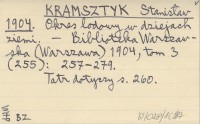 KRAMSZTYK Stanisław
1904. Okres lodowy w dziejach
ziemi. – Biblioteka Warszaw-
ska (Warszawa) 1904, tom 3
(255): 257–279.
Tatr dotyczy s. 260.
BZ